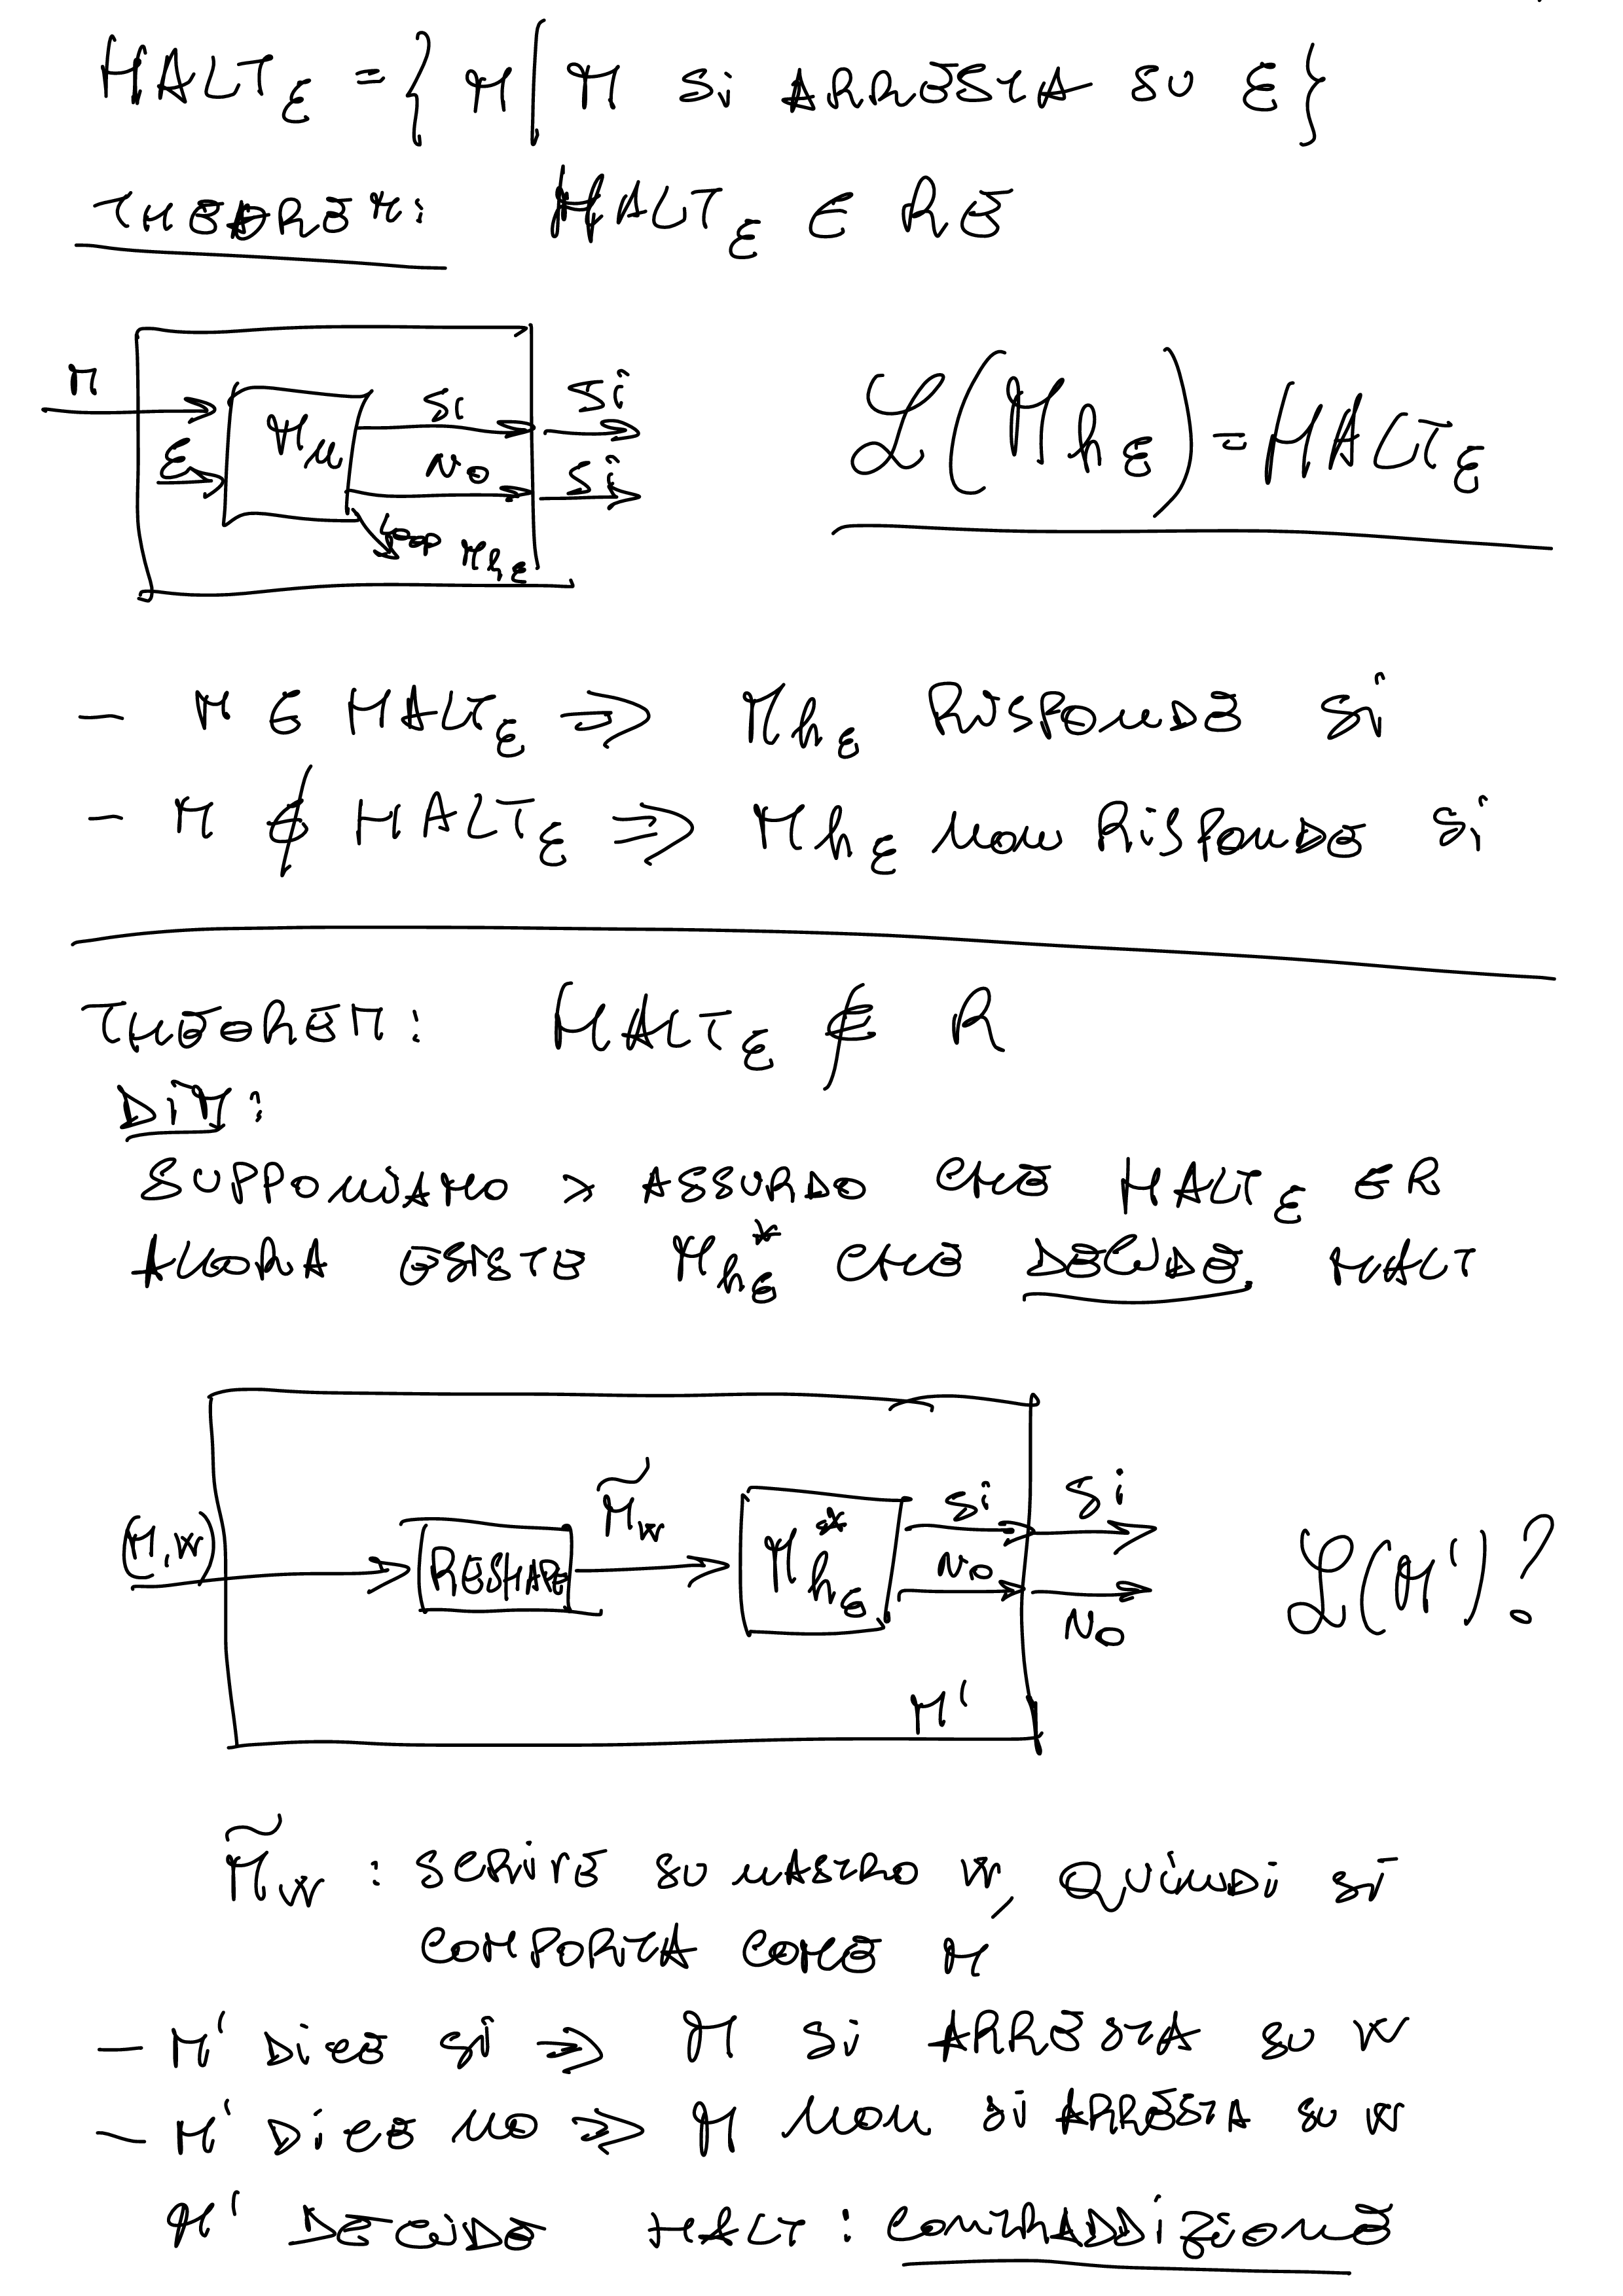 HALT_ε = { M | M Si ARRESTA SU ε }
THEOREM: HALT_ε ∈ RE
M
ε
M_u
Si
No
loop
M_hε
Si
Si
L(M_hε) = HALT_ε
- M ∈ HALT_ε ⇒ M_hε RISPONDE Si
- M ∉ HALT_ε ⇒ M_hε NON RISPONDE Si
THEOREM: HALT_ε ∉ R
DIM:
SUPPONIAMO x ASSURDO CHE HALT_ε ∈ R
ALLORA ESISTE M*_hε CHE DECIDE HALT
(M,w)
RESHAPE
M̃_w
M*_hε
Si
No
Si
No
M'
L(M')?
M̃_w : SCRIVE SU NASTRO w, QUINDI SI
COMPORTA COME M
- M' DICE Si ⇒ M Si ARRESTA SU w
- M' DICE NO ⇒ M NON Si ARRESTA SU w
M' DECIDE HALT : CONTRADDIZIONE